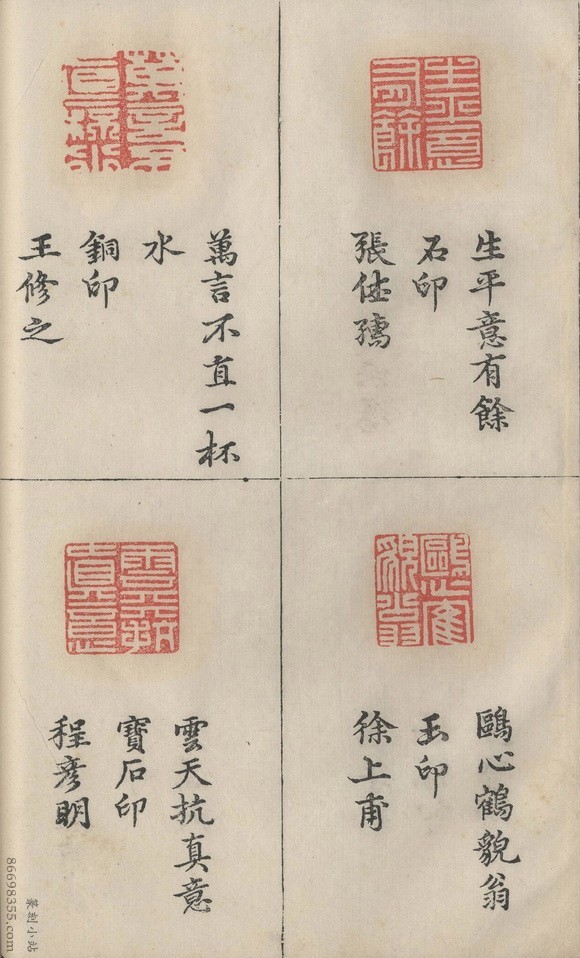 生平意有餘
石印
張仕孺
萬言不直一杯
水
銅印
王修之
鷗心鶴貌翁
玉印
徐上甫
雲天抗真意
寶石印
程彥明
篆刻小站
86698355.com